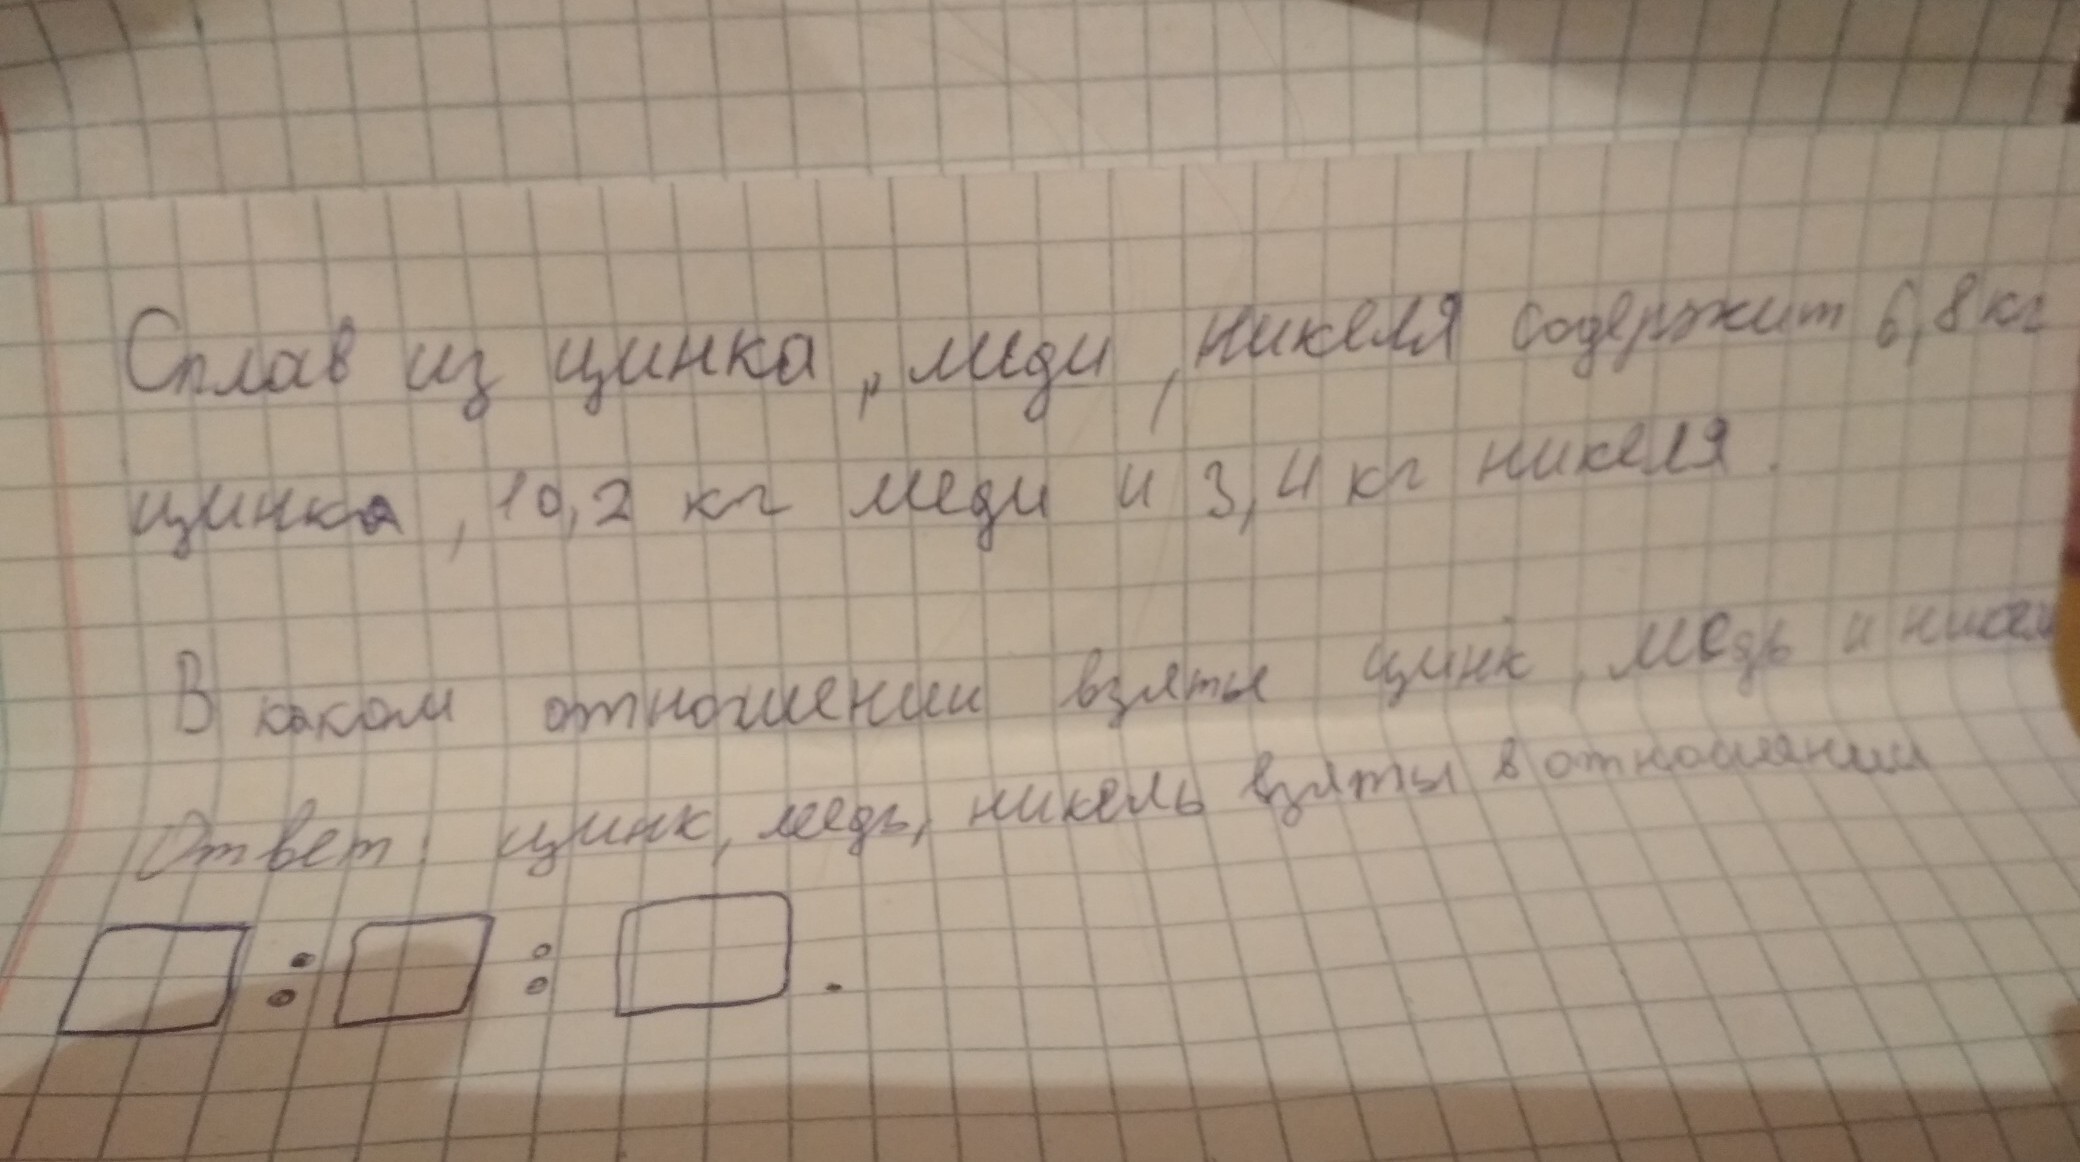 Сплав из цинка, меди, никеля содержит 6,8 кг
цинка, 10,2 кг меди и 3,4 кг никеля.
В каком отношении взяты цинк, медь и
Ответ: цинк, медь, никель взяты в отношении
: : .